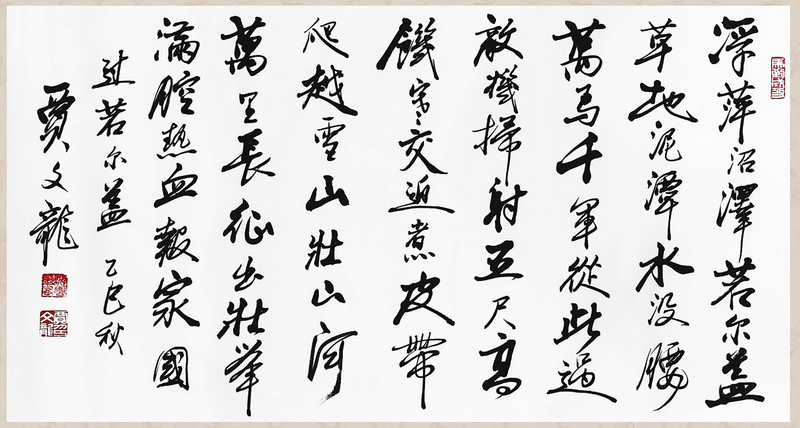 浮萍沼澤若尔蓋
草地泥潭水没腰
萬马千軍從此過
敌機掃射五尺高
饑寒交迫煮皮帶
爬越雪山壯山河
萬里長征出壯举
滿腔热血報家國
过若尔蓋 乙巳秋
賈文龍